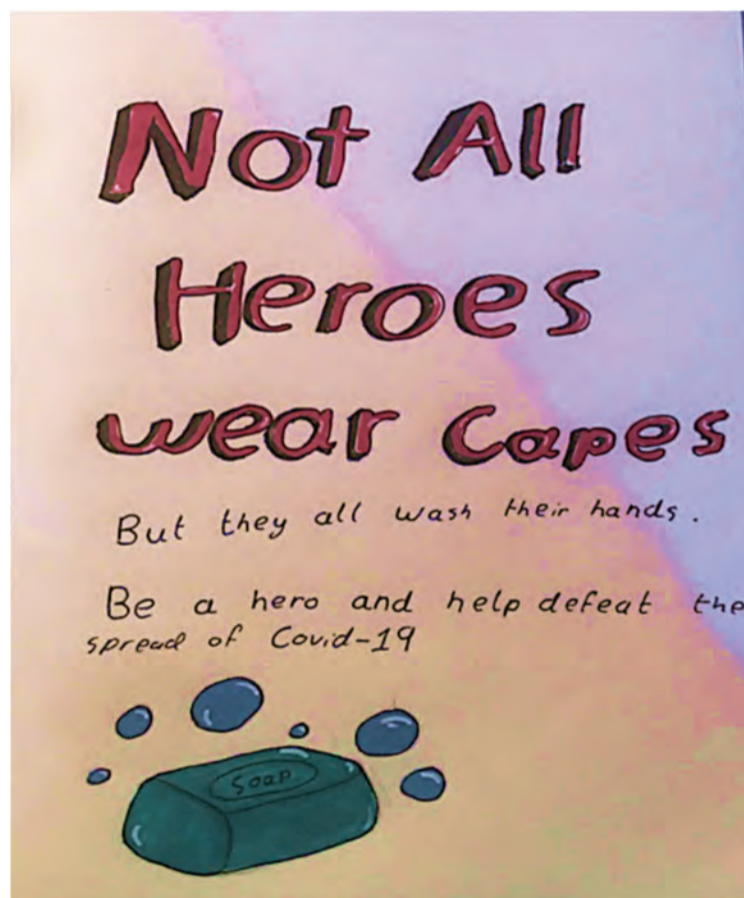 Not All
Heroes
wear Capes
But they all wash their hands.
Be a hero and help defeat the
spread of Covid-19
Soap